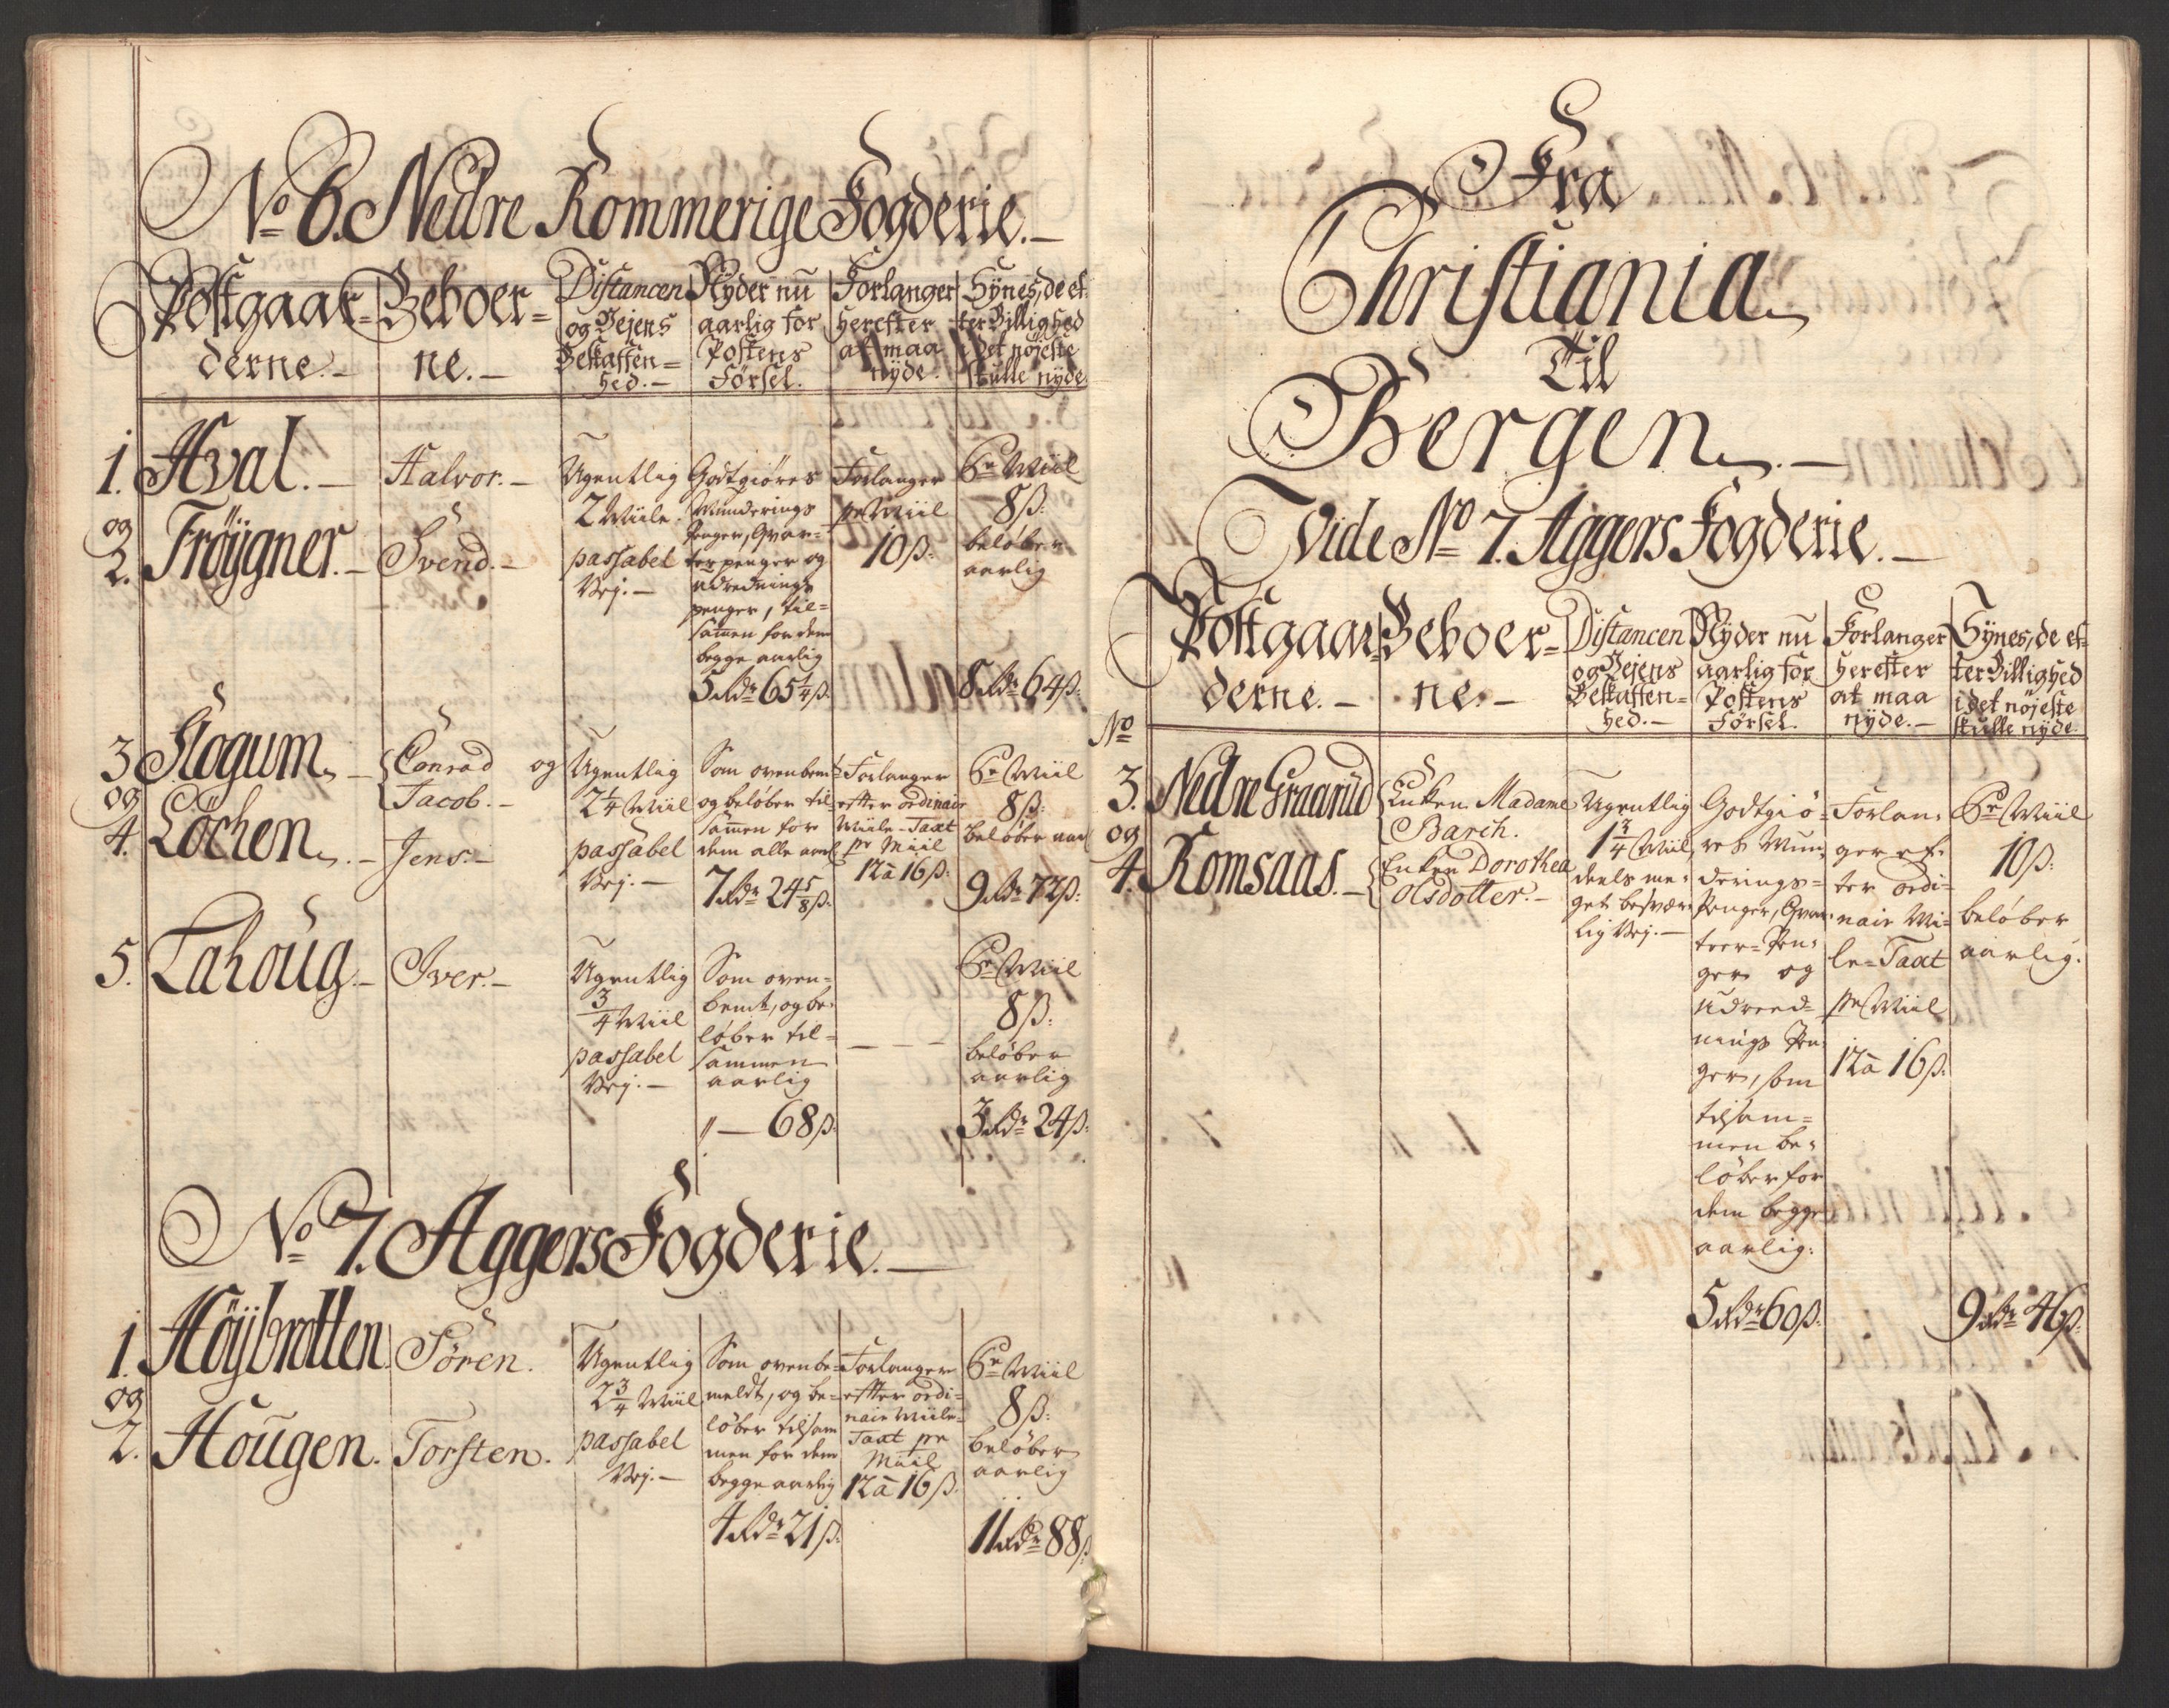 No 6. Nedre Rommerige Fogderie.
Postgaar-
derne.
Beboer-
ne.
Distancen
og Vejens
Beskaffen-
hed.
Nyder nu
aarlig for
Postens
Førsel.
Forlanger
herefter
at maa
nyde.
Synes, de ef-
ter Billighed
i det nøjeste
skulle nyde
1. Hval. Halvor.
og
2. Frøygner. Svend.
Ugentlig
2 Miile.
passabel
Vej.
Godtgiøres
Munderings
Penger, Qvar-
teerpenger og
udrednings
penger, til-
sammen for dem
begge aarlig
5 Rdr 65 1/4 ß.
Forlanger
pr Miil
10 ß.
Pr Miil
8 ß.
beløber
aarlig
8 Rdr 64 ß.
3 Slogum. Conrad og
Jacob.
og
4. Löchen. Jens.
Ugentlig
2 1/4 Miil
passabel
Vej.
Som ovenbemt
og beløber til
sammen for
dem alle aarl
7 Rdr 24 5/8 ß.
Forlanger
efter ordinair
Miile-Taxt
pr Miil
12 à 16 ß.
Pr Miil
8 ß.
beløber aarl
9 Rdr 72 ß.
5. Lahoug. Iver.
Ugentlig
3/4 Miil
passabel
Vej.
Som oven-
bemt, og be-
løber til-
sammen
aarlig
" — 68 ß.
— — —
Pr Miil
8 ß.
beløber
aarlig
3 Rdr 24 ß.
No 7. Aggers Fogderie.
1. Høybrotten. Sören.
og
2. Hougen. Torsten.
Ugentlig
2 3/4 Miil
passabel
Vej.
Som ovenbe-
meldt, og be-
løber tilsam
men for dem
begge aarlig
4 Rdr 21 ß.
Forlanger
efter ordi-
nair Miile-
Taxt pr
Miil
12 à 16 ß.
Pr Miil
8 ß.
beløber
aarlig
11 Rdr 88 ß.
Fra
Christiania
Til
Bergen.
Vide No 7. Aggers Fogderie.
Postgaar-
derne.
Beboer-
ne.
Distancen
og Vejens
Beskaffen-
hed.
Nyder nu
aarlig for
Postens
Førsel.
Forlanger
herefter
at maa
nyde.
Synes, de ef-
ter Billighed
i det nøjeste
skulle nyde.
No
3. Nedre Graarud Enken Madame
Barch.
og
4. Romsaas. Enken Dorothea
Olsdotter.
Ugentlig
1 3/4 Miil,
deels me-
get besvær-
lig Vej.
Godtgiø-
res Mun-
derings-
Penger, Qvar-
teer-Pen-
ger og
Udreed-
nings Pen-
ger, som
tilsam-
men be-
løber for
dem begge
aarlig:
5 Rdr 60 ß.
Forlan-
ger ef-
ter ordi-
nair Mi-
le-Taxt
pr Miil
12 à 16 ß.
Pr Miil
10 ß.
beløber
aarlig.
9 Rdr 46 ß.